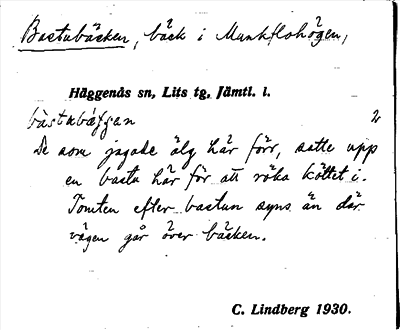 Bastubäcken, bäck i Munkflohögen,
Häggenås sn, Lits tg, Jämtl. l.
De som jagade älg här förr, satte upp
en bastu här för att röka köttet i.
Tomten efter bastun syns än där
vägen går över bäcken.
C. Lindberg 1930.